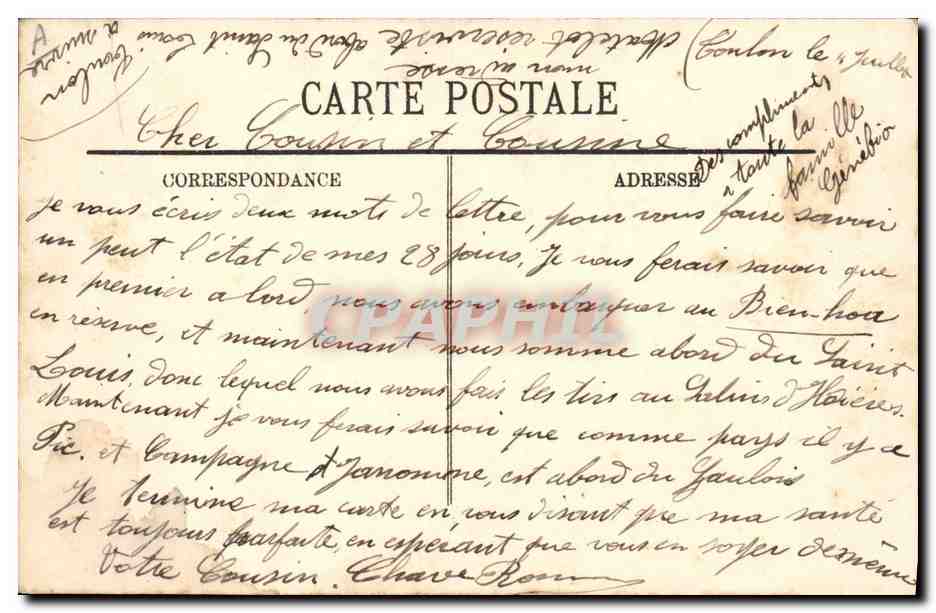 (Toulon le 4 Juillet
mon adresse
Matelot réserviste abord du Saint Louis
Toulon
A suivre
CARTE POSTALE
Cher Cousin et Cousine
CORRESPONDANCE
ADRESSE
Des compliments
a toute la
famille
Génébio
Je vous écris deux mots de lettre, pour vous faire savoir
un peut l'état de mes 28 jours, Je vous ferais savoir que
en premier abord, nous avons embarquer au Bien-hoa
en reserve, et maintenant nous somme abord du Saint
Louis, donc lequel nous avons fais les tirs au Salins d'Hoières.
Maintenant je vous ferais savoir que comme pays il y a
Pic. et Campagne est abord du Gaulois
Je termine ma carte en vous disant que ma santé
est toujours parfaite, en espérant que vous en soyer de même
Votre Cousin. Chave
CPAPHIL